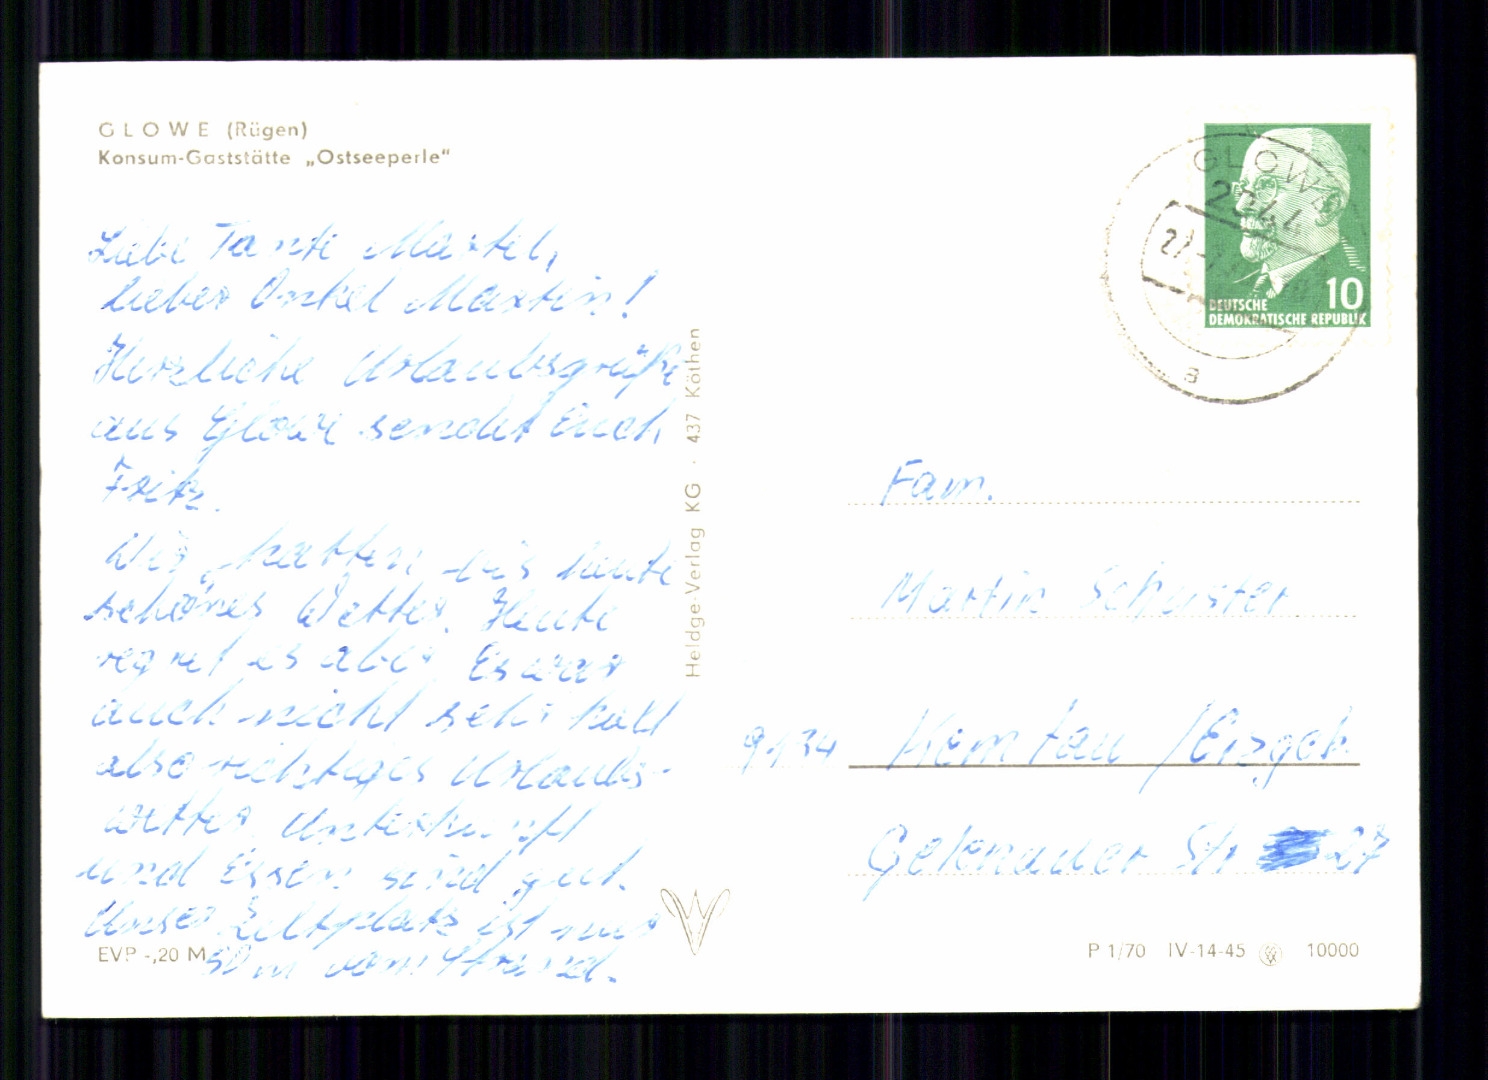 GLOWE (Rügen)
Konsum-Gaststätte „Ostseeperle“
Liebe Tante Martel,
lieber Onkel Martin!
Herzliche Urlaubsgrüße
aus Glowe sendet Euch
Fritz.
Wir hatten bis heute
schönes Wetter. Heute
regnet es aber. Es war
auch nicht sehr kalt
also richtiges Urlaubs-
wetter. Unterkunft
und Essen sind gut.
Unser Zeltplatz ist nur
50 m vom Strand.
EVP -,20 M
Heldge-Verlag KG · 437 Köthen
GLOWE
2344
a
10
DEUTSCHE
DEMOKRATISCHE REPUBLIK
Fam.
Martin Schuster
9134 Kemtau /Erzgeb.
Gelenauer Str 27
P 1/70 IV-14-45 10000